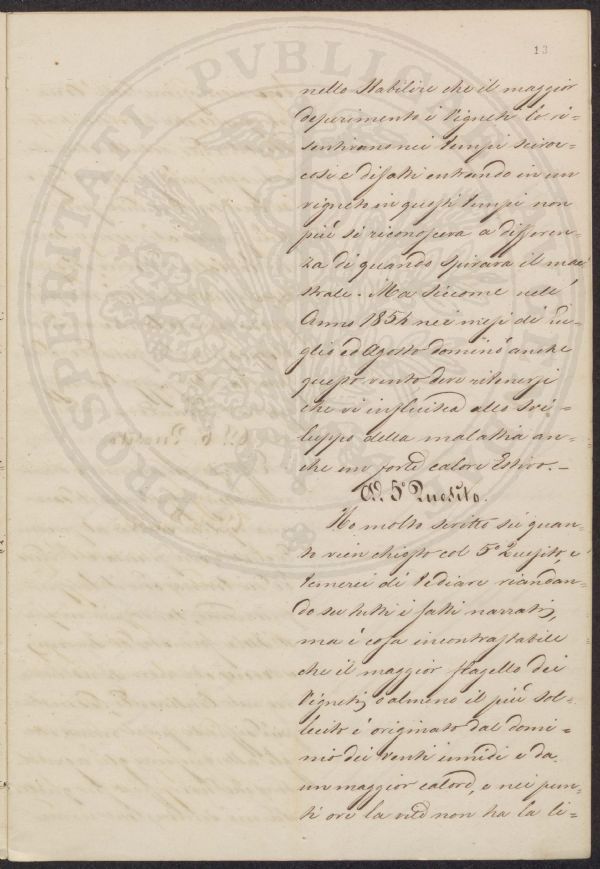 13
nello stabilire che il maggior
deperimento i Vigneti lo ri=
sentivano nei tempi sciroc=
cosi e difatti entrando in un
vigneto in questi tempi non
più si riconosceva a differen=
za di quando spirava il mae=
strale. Ma siccome nell'
Anno 1854 nei mesi di Lu=
glio ed Agosto dominò anche
questo vento deve ritenersi
che vi influisca allo svi=
luppo della malattia an=
che un forte calore Estivo.—
Al 5º Quesito.
Ho molto scritto su quan=
to vien chiesto col 5º Quesito, e
temerei di tediare riandan=
do su tutti i fatti narrati,
ma è cosa incontrastabile
che il maggior flagello dei
Vigneti, o almeno il più sol=
lecito è originato dal domi=
nio dei venti umidi e da
un maggior calore, e nei pun=
ti ove la vite non ha la li=
PROSPERITATI PVBLICAE